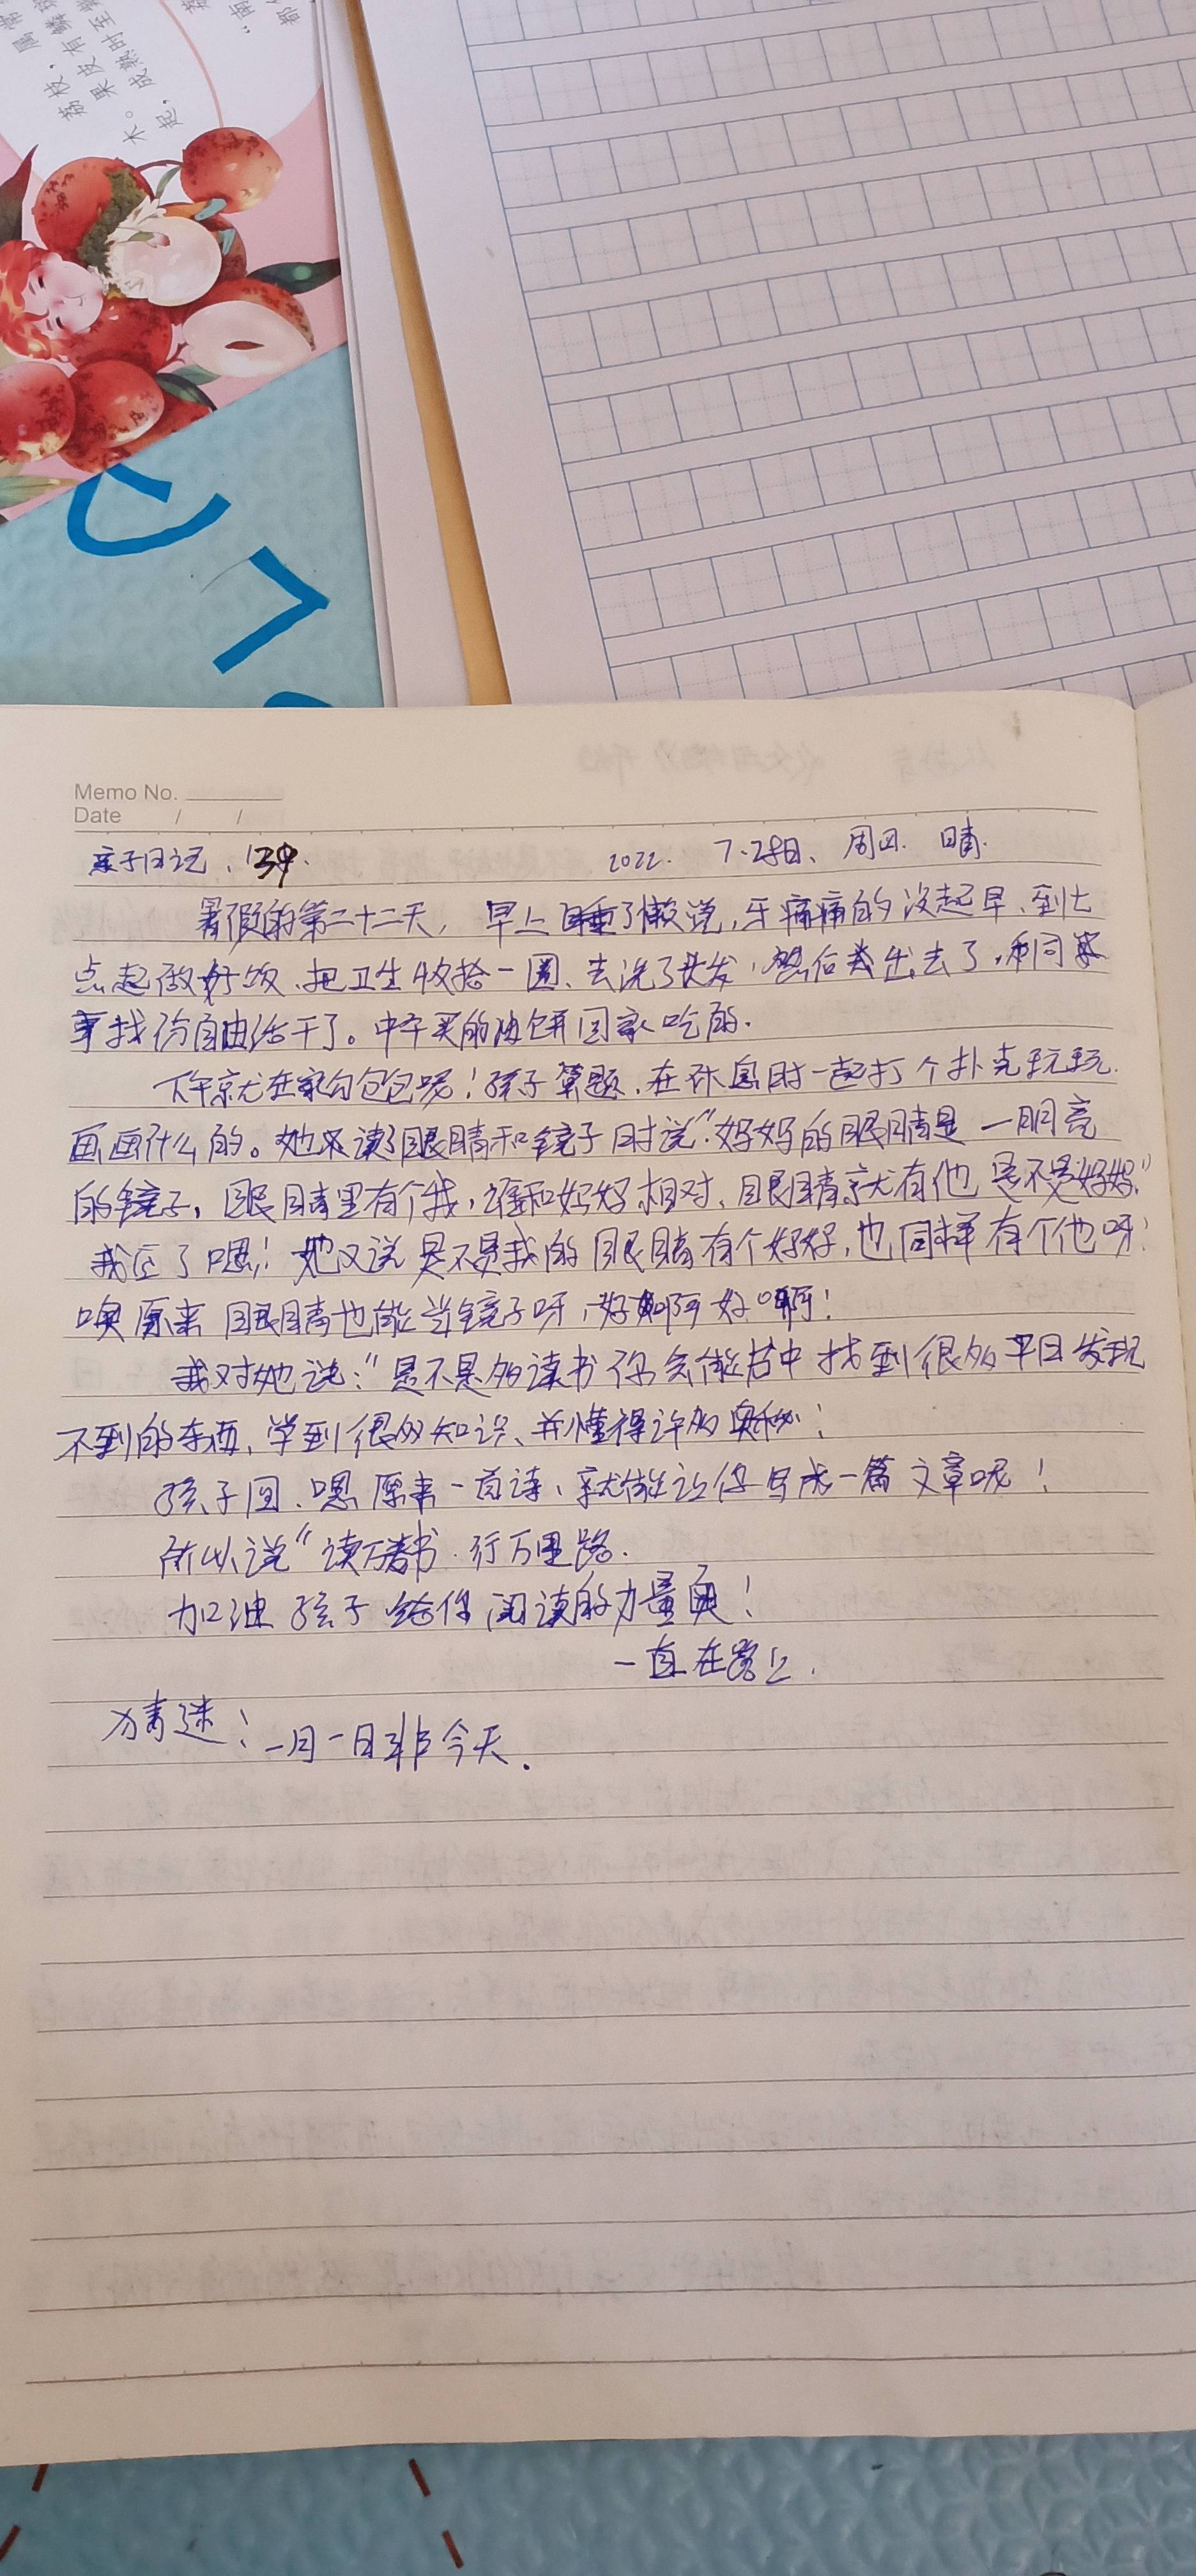 荔枝，属
果皮有鳞
木。
成熟时至
起，
"南
Memo No.
Date / /
亲子日记、139.
2022. 7.28日、周四. 晴.
暑假的第二十二天, 早上睡了懒觉,牙痛痛的没起早、到七
点起做好饭、把卫生收拾一圈、去洗了头发,然后出去了,和同
事找份自由活干了。中午买的油饼回家吃的.
下午就在家勾包包呢!孩子算题.在休息时一起打个扑克玩玩.
画画什么的。她读了眼睛和镜子时说"妈妈的眼睛是一明亮
的镜子,眼睛里有个我,谁和妈妈相对、眼睛就有他,是不是妈妈"
我应了嗯! 她又说是不是我的眼睛有个妈妈,也同样有个他呀!
噢原来眼睛也能当镜子呀,好啊好啊!
我对她说:"是不是多读书你会能书中找到很多平日发现
不到的东西,学到很多知识、并懂得许多奥秘!
孩子回、嗯原来一首诗、就能让你写成一篇文章呢!
所以说"读万卷书.行万里路.
加油孩子给你阅读的力量奥!
一直在路上.
猜迷!一月一日非今天.